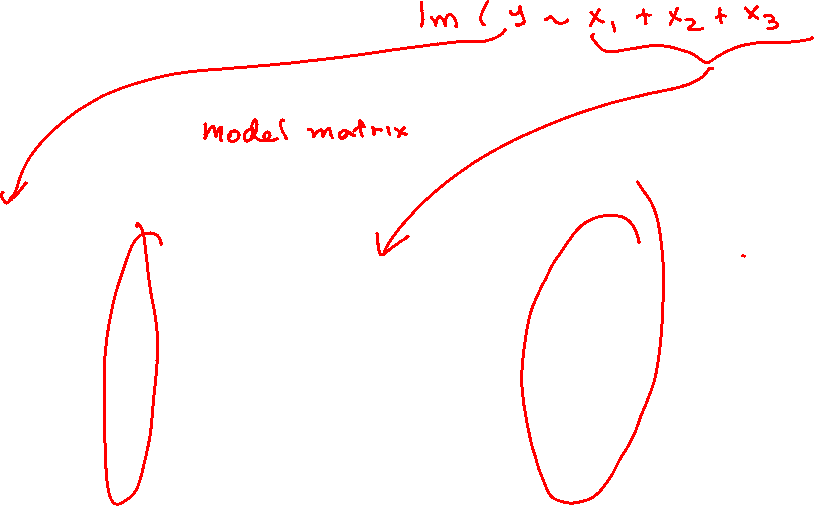 lm ( y ~ x₁ + x₂ + x₃
model matrix